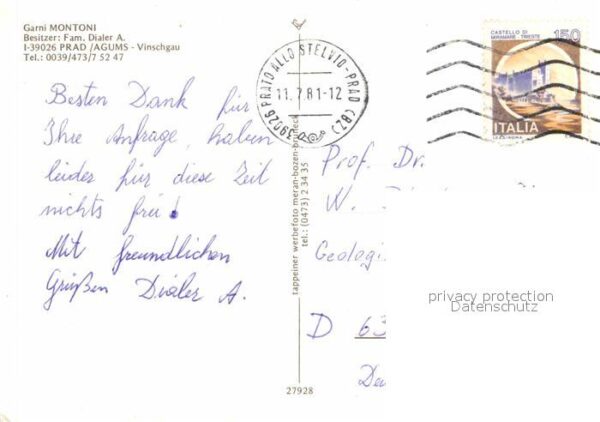 Garni MONTONI
Besitzer: Fam. Dialer A.
I-39026 PRAD /AGUMS - Vinschgau
Tel.: 0039/473/7 52 47
Besten Dank für
Ihre Anfrage, haben
leider für diese Zeit
nichts frei!
Mit freundlichen
Grüßen Dialer A.
39026 PRATO ALLO STELVIO-PRAD (BZ)
11.7.81-12
tappeiner werbefoto meran-bozen-
tel.: (0473) 2 34 35
27928
CASTELLO DI
MIRAMARE - TRIESTE
150
ITALIA
Prof. Dr.
W.
Geologi
D 63
privacy protection
Datenschutz